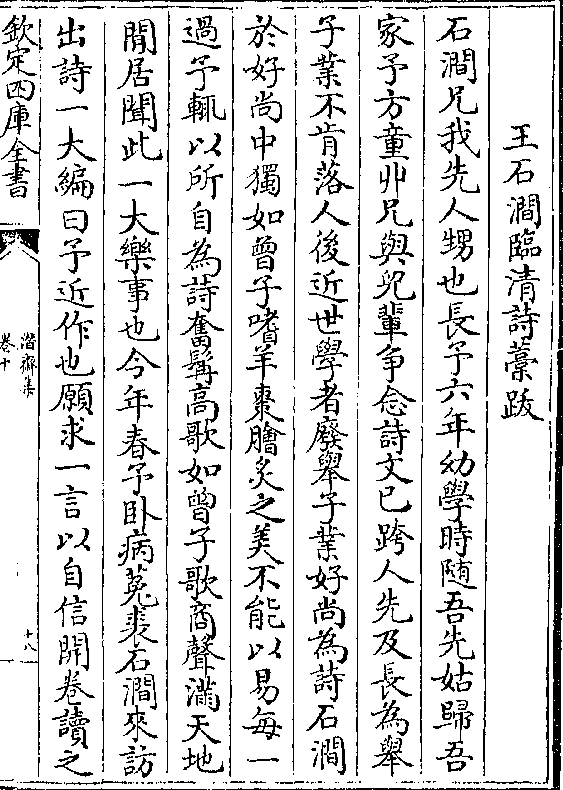 王石澗臨清詩藁跋
石澗兄我先人甥也長予六年幼學時随吾先姑歸吾
家予方童丱兄與兒輩争念詩文已跨人先及長為舉
子業不肯落人後近世學者廢舉子業好尚為詩石澗
於好尚中獨如曾子嗜羊棗膾炙之美不能以易每一
過予輒以所自為詩奮髯高歌如曾子歌商聲滿天地
閒居聞此一大樂事也今年春予卧病菟裘石澗來訪
出詩一大編曰予近作也願求一言以自信開卷讀之
欽定四庫全書
潛齋集
卷十
十八